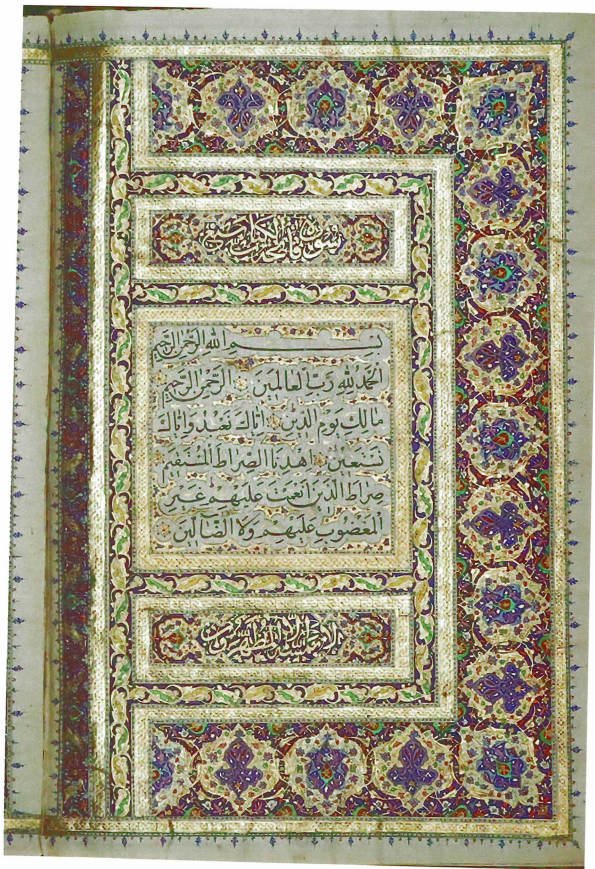 سورة فاتحة الكتاب
بسم الله الرحمن الرحيم
الحمد لله رب العالمين الرحمن الرحيم
مالك يوم الدين اياك نعبد واياك
نستعين اهدنا الصراط المستقيم
صراط الذين انعمت عليهم غير
المغضوب عليهم ولا الضالين
لا يمسه الا المطهرون